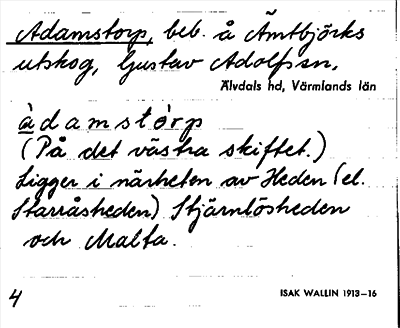 Adamstorp, beb. å Ämtbjörks
utskog, Gustav Adolfs sn,
Älvdals hd, Värmlands län
àdamstòrp
(På det västra skiftet.)
Ligger i närheten av Heden (el.
Starråsheden) Stjärnlösheden
och Malta.
4
ISAK WALLIN 1913–16